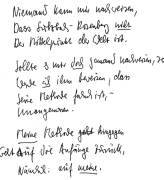 Niemand kann mir nachweisen,
Dass
nicht
Der Mittelpunkt der Welt ist.
Sollte es mir doch jemand nachweisen, so
werde ich ihm beweisen, dass
seine Methode falsch ist, –
Unangemessen.
Meine Methode geht hingegen
Auf die Anfänge zurück,
Nämlich: auf meine.